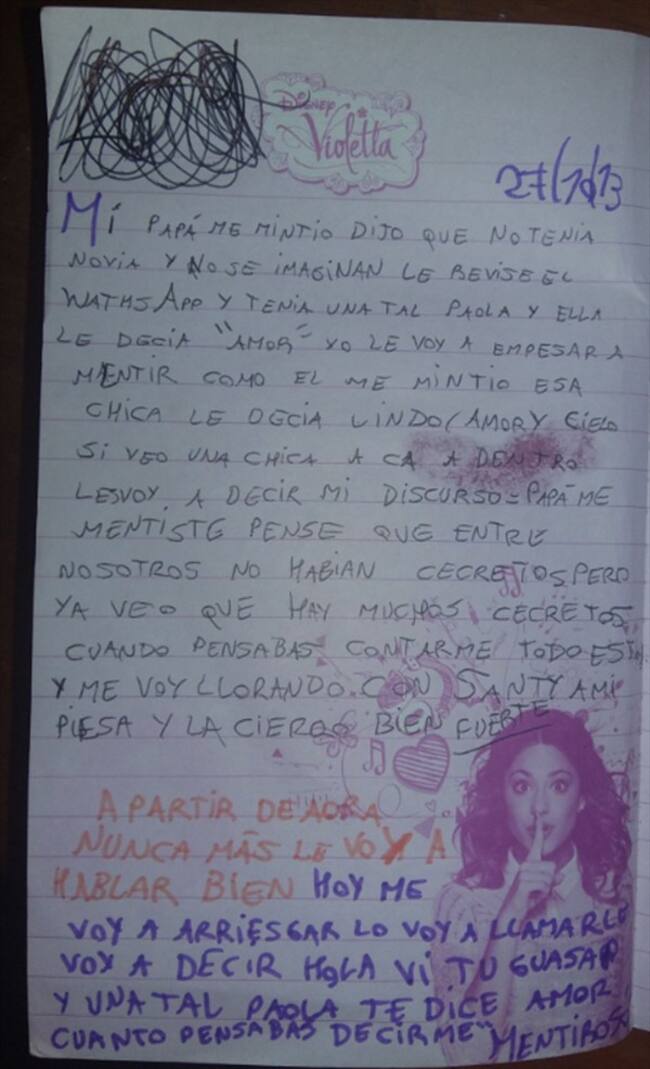 DISNEY
Violetta
27/10/13
MI PAPÁ ME MINTIO DIJO QUE NO TENIA
NOVIA Y NO SE IMAGINAN LE REVISE EL
WATHSAPP Y TENIA UNA TAL PAOLA Y ELLA
LE DECIA "AMOR" YO LE VOY A EMPESAR A
MENTIR COMO EL ME MINTIO ESA
CHICA LE DECIA LINDO, AMOR Y CIELO
SI VEO UNA CHICA A CA A DENTRO
LESVOY A DECIR MI DISCURSO = PAPÁ ME
MENTISTE PENSE QUE ENTRE
NOSOTROS NO HABIAN CECRETOS PERO
YA VEO QUE HAY MUCHOS CECRETOS
CUANDO PENSABAS CONTARME TODO ESTO
Y ME VOY LLORANDO CON SANTY A MI
PIESA Y LA CIERRO BIEN FUERTE
A PARTIR DE AORA
NUNCA MÁS LE VOY A
HABLAR BIEN HOY ME
VOY A ARRIESGAR LO VOY A LLAMAR LE
VOY A DECIR HOLA VI TU GUASAP
Y UNA TAL PAOLA TE DICE AMOR
CUANTO PENSABAS DECIRME" MENTIROSO